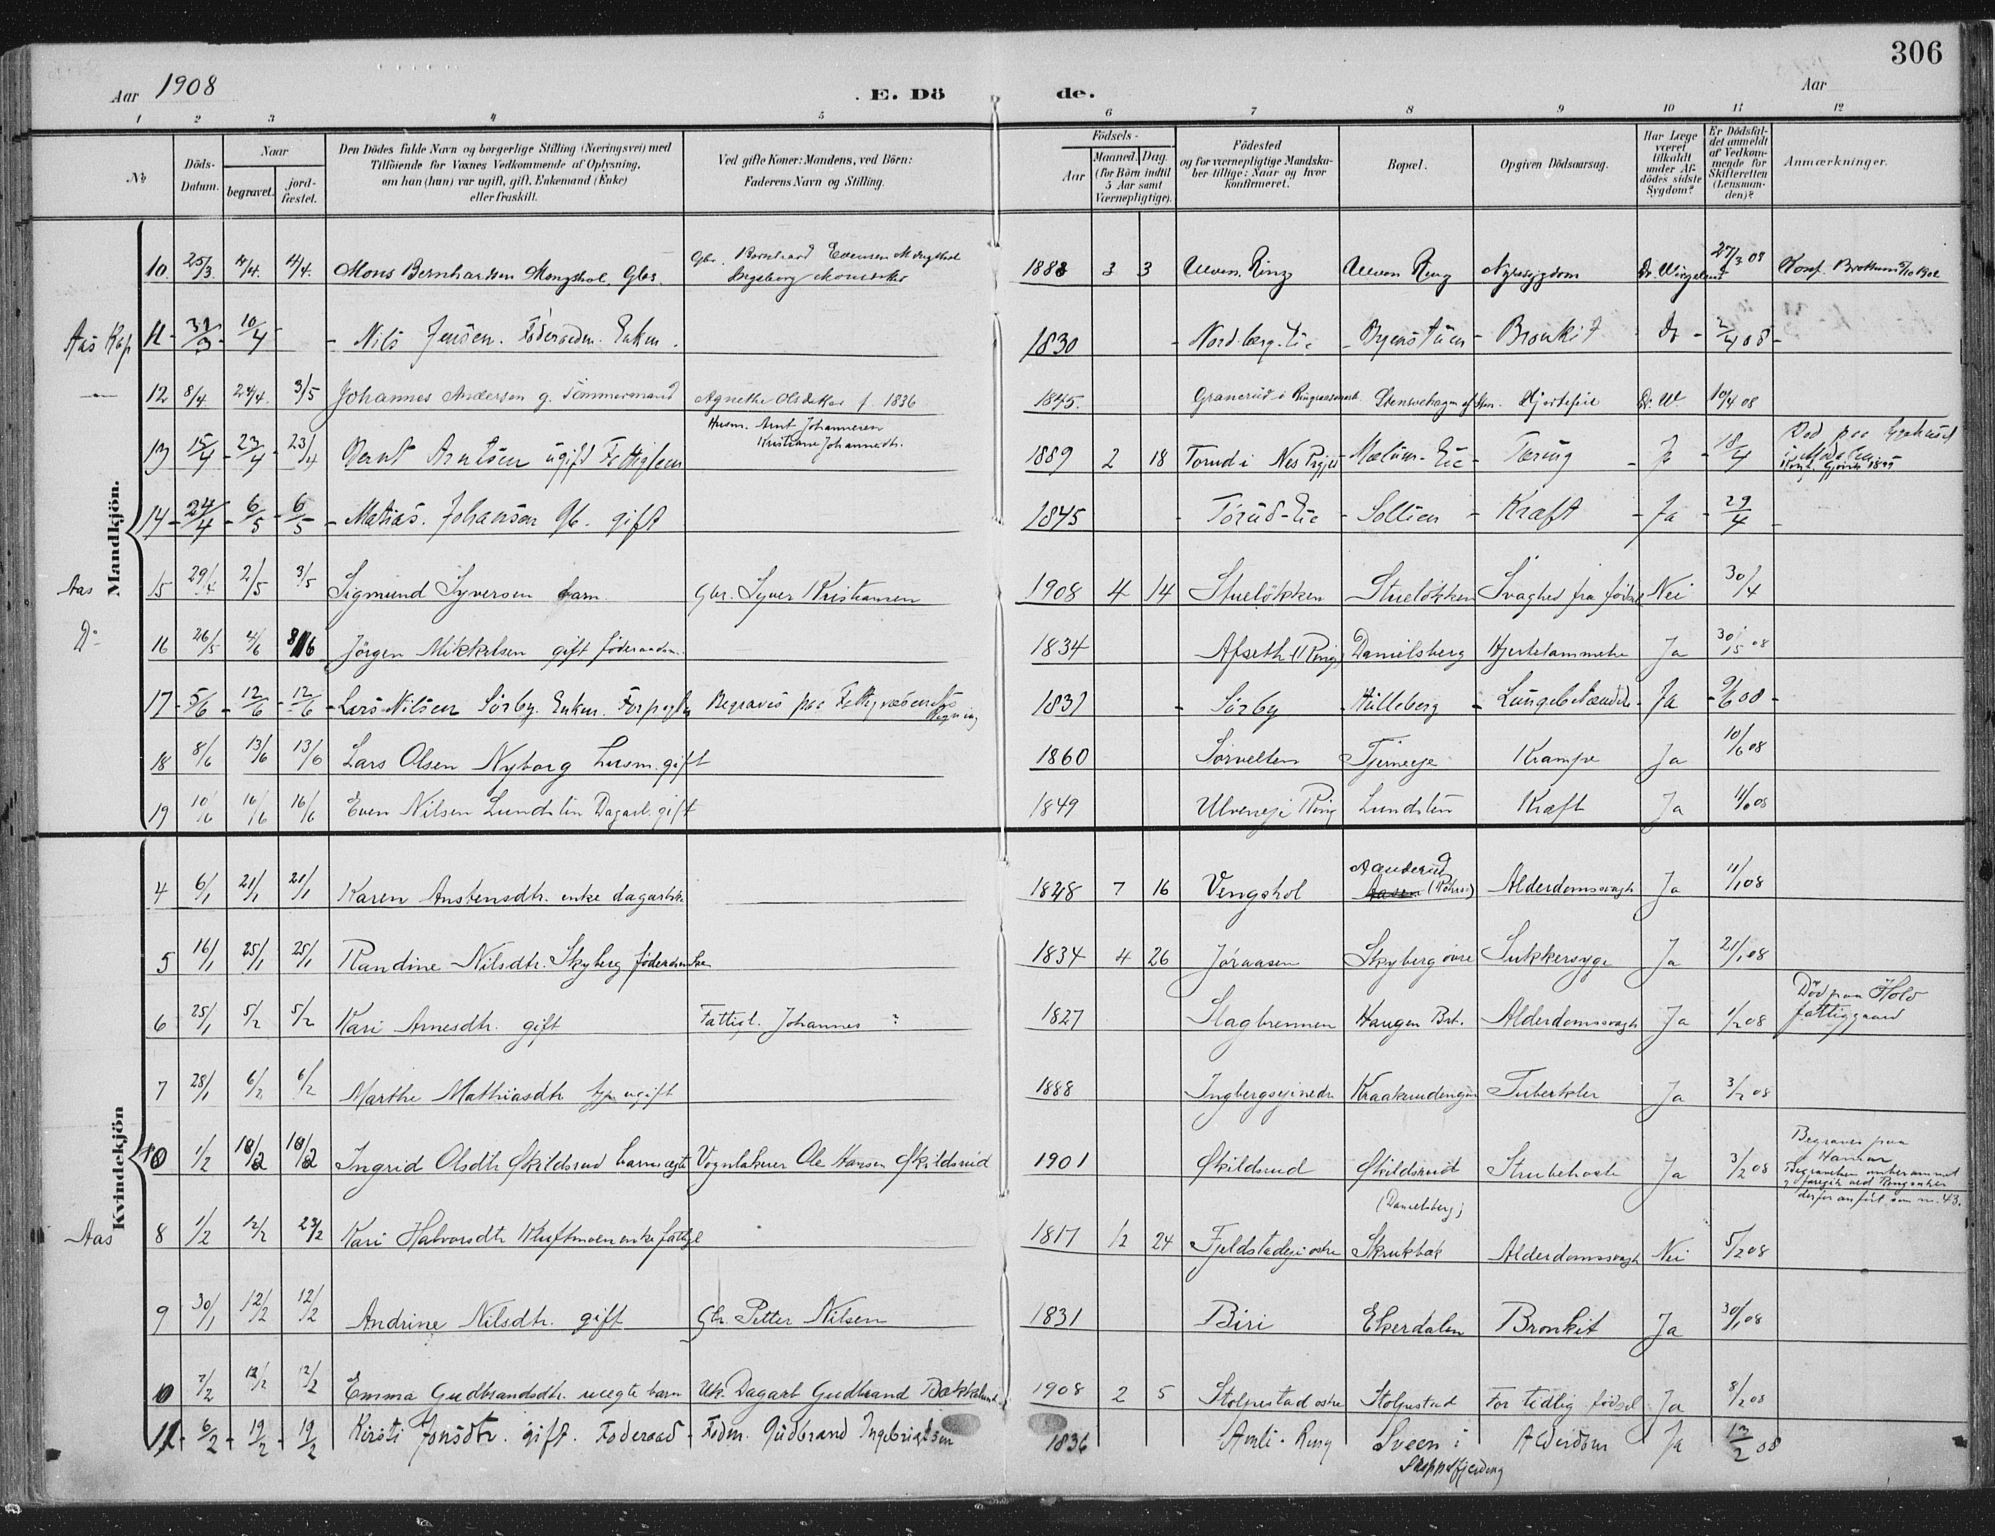 306
Aar 1908
E. Dö de.
Aar
1 2 3 4 5 6 7 8 9 10 11 12
No
Döds-Datum.
Naar
begravet.
jord-fæstet.
Den Dödes fulde Navn og borgerlige Stilling (Næringsvei) med
Tilföiende for Voxnes Vedkommende af Oplysning,
om han (hun) var ugift, gift, Enkemand (Enke)
eller fraskilt.
Ved gifte Koner: Mandens, ved Börn:
Faderens Navn og Stilling.
Födsels-
Aar
Maaned. Dag.
(for Börn indtil
5 Aar samt
Værnepligtige).
Födested
og for værnepligtige Mandska-
ber tillige: Naar og hvor
konfirmeret.
Bopæl.
Opgiven Dödsaarsag.
Har Læge
været
tilkaldt
under Af-
dödes sidste
Sygdom?
Er Dödsfal-
det anmeldt
af Vedkom-
mende for
Skifteretten
(Lensman-
den)?
Anmærkninger.
Mandkjön.
10. 25/3 4/4. 4/4. Mons Bernhardsen Mengshol, Gbs. Gbr. Bernhard Evensen Mengshol
Ingeborg
1888 3 3 Ulven Ring Ulven Ring Nyresygdom Dr. 27/3 08 Konf. Brøttum
Aas Kap 11 - 31/3 - 10/4 - Nils Jensen. Föderaadm. Enkem. 1830 Nordberg - Eie Bronkit Dr - 2/4 08 -
12 8/4. 24/4. 3/5 Johannes Andersen g. Tömmermand Agnethe Olsdatter f. 1836 1845. Granerud i Hjertefeil Dr. W. 10/4 08
13 15/4 - 23/4 23/4 Bernt Arntsen ugift Husm. Arnt Johannesen
Kristiane Johannedtr.
1889 2 18 Torud i Nes Prgjd Mælum - Eie - Tæring - Ja - 18/4 Död paa
14 - 24/4 - 6/5 - 6/5 - Matias. Johansen Gb. gift 1845 - Törud - Eie - Sollien - Kræft - Ja - 29/4 -
Aas 15 29/4 2/5 3/5 Sigmund Syversen barn. Gbr. Syver Kristiansen 1908 4 14 Stuelökken Stuelökken Svaghed fra födsel Nei 30/4
Do 16 26/5 4/6 8/6 Jörgen Mikkelsen gift föderaadsm. 1834 Afseth i Ring Danielsberg Hjertelammelse Ja 30/5 08
17 - 5/6 - 12/6 - 12/6 - Lars Nilsen Sörby. Enkem. Begraves paa Fattigvæsenets
Regning
1831 - Sörby - Hülleberg - Lungebetændelse - Ja - 9/6 08 -
18 8/6 13/6 13/6 Lars Olsen Nyborg husm. gift 1860 Sörvelten Tjerneeje Krampe Ja 10/6 08
19 10/6 16/6 16/6 Even Nilsen Lundsten Dagarb. gift 1849 Ulveneje i Ring Lundsten Kræft Ja 11/6 08
Kvindekjön
4 6/1 21/1 21/1 Karen Anstensdtr. enke dagarbske 1828 7 16 Vengshol Aanderud
Alderdomssvagh Ja 11/1 08
5 16/1 25/1 25/1 Randine Nilsdtr. Skyberg föderaadsenke 1834 4 26 Jöraasen Skyberg övre Sukkersyge Ja 21/1 08
6 25/1 5/2 5/2 Kari Arnesdtr. gift Fattigl. Johannes ? 1827 Slagbrennen Haugen Brt. Alderdomssvagh Ja 1/2 08 Död paa Holo
fattiggaard
7 28/1 6/2 6/2 Marthe Mathiasdtr ugift 1888 Ingbergseie nedr. Tuberkler Ja 3/2 08
1/2 18/2 18/2 Ingrid Olsdtr Økildsrud barn ægte Vognlakerer Ole Hansen Økildsrud 1901 Økildsrud Økildsrud
(Danielsberg)
Strubehoste Ja 3/2 08 Begraves paa
Hamar
Begravelsen anberammet
og foregik ved Ringsaker
derfor anfört som nr. 43.
Aas 8 1/2 12/2 23/2 Kari Halvorsdtr Kluftmoen enke fattigl 1817 12 24 Fjeldstadeje östre Skrukbak Alderdomssvagh Nei 5/2 08
9 30/1 12/2 12/2 Andrine Nilsdtr. gift Gbr. Petter Nilsen 1831 Biri Ekerdalen Bronkit Ja 30/1 08
10 7/2 12/2 12/2 Emma Gudbrandsdtr. uægte barn Uk. Dagarb Gudbrand 1908 2 5 Stolpestad östre Stolpestad For tidlig födsel Ja 8/2 08
11 - 6/2 - 19/2 - 19/2 Kirsti Jonsdtr. gift. Foderaad - Födm. Gudbrand Ingebrigtsen 1836 Amli - Ring Sveen i
Alderdom Ja 13/2 08